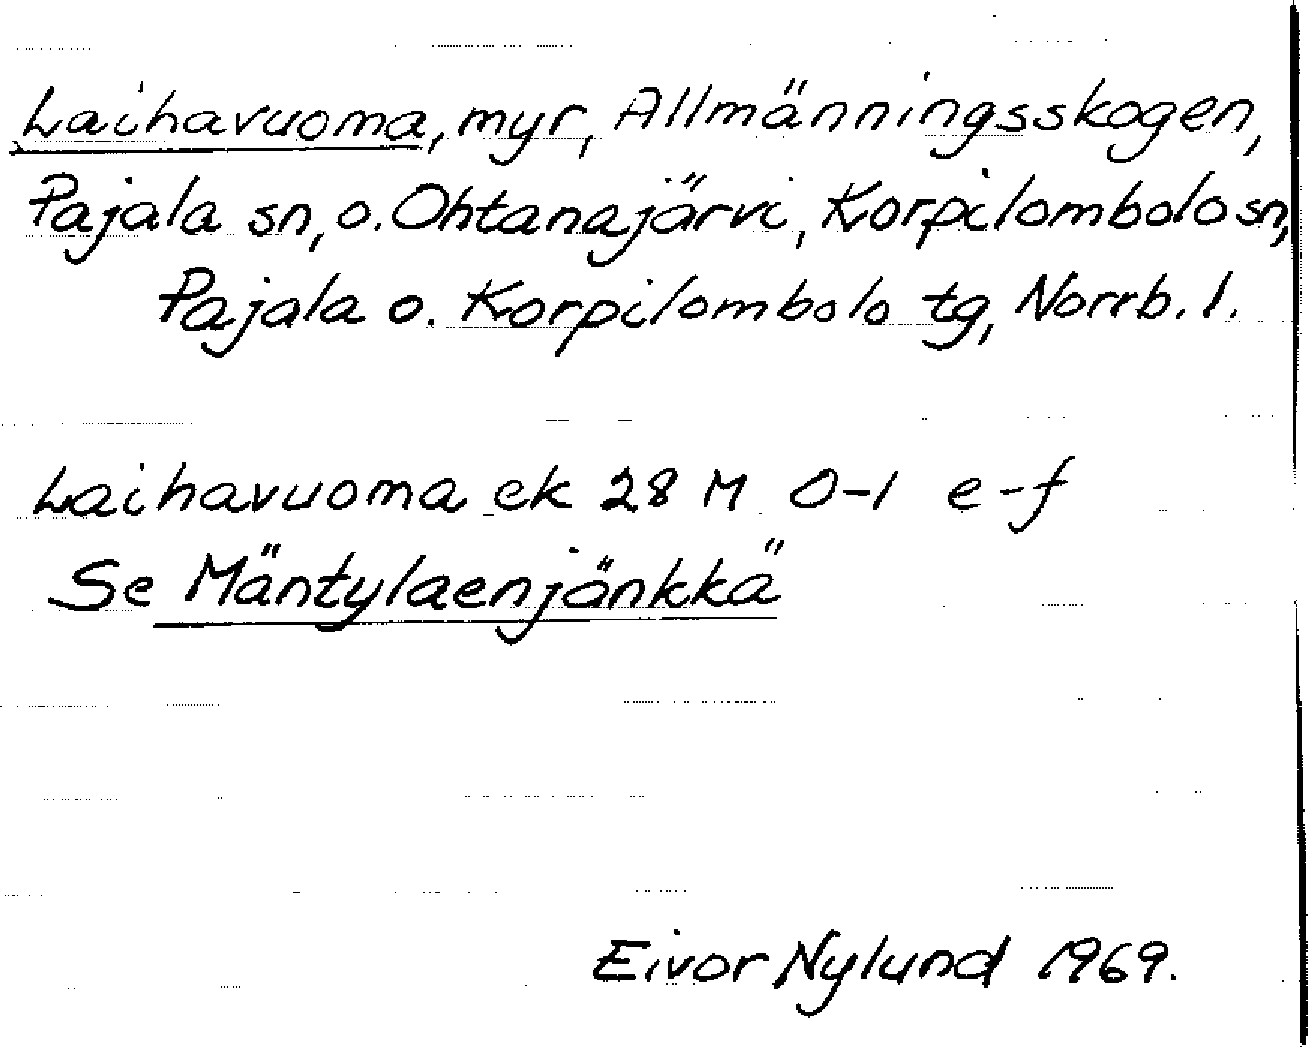 Laihavuoma, myr, Allmänningsskogen,
Pajala sn, o. Ohtanajärvi, Korpilombolo sn,
Pajala o. Korpilombolo tg, Norrb. l.
Laihavuoma ek 28 M 0-1 e-f
Se Mäntylaenjänkkä
Eivor Nylund 1969.